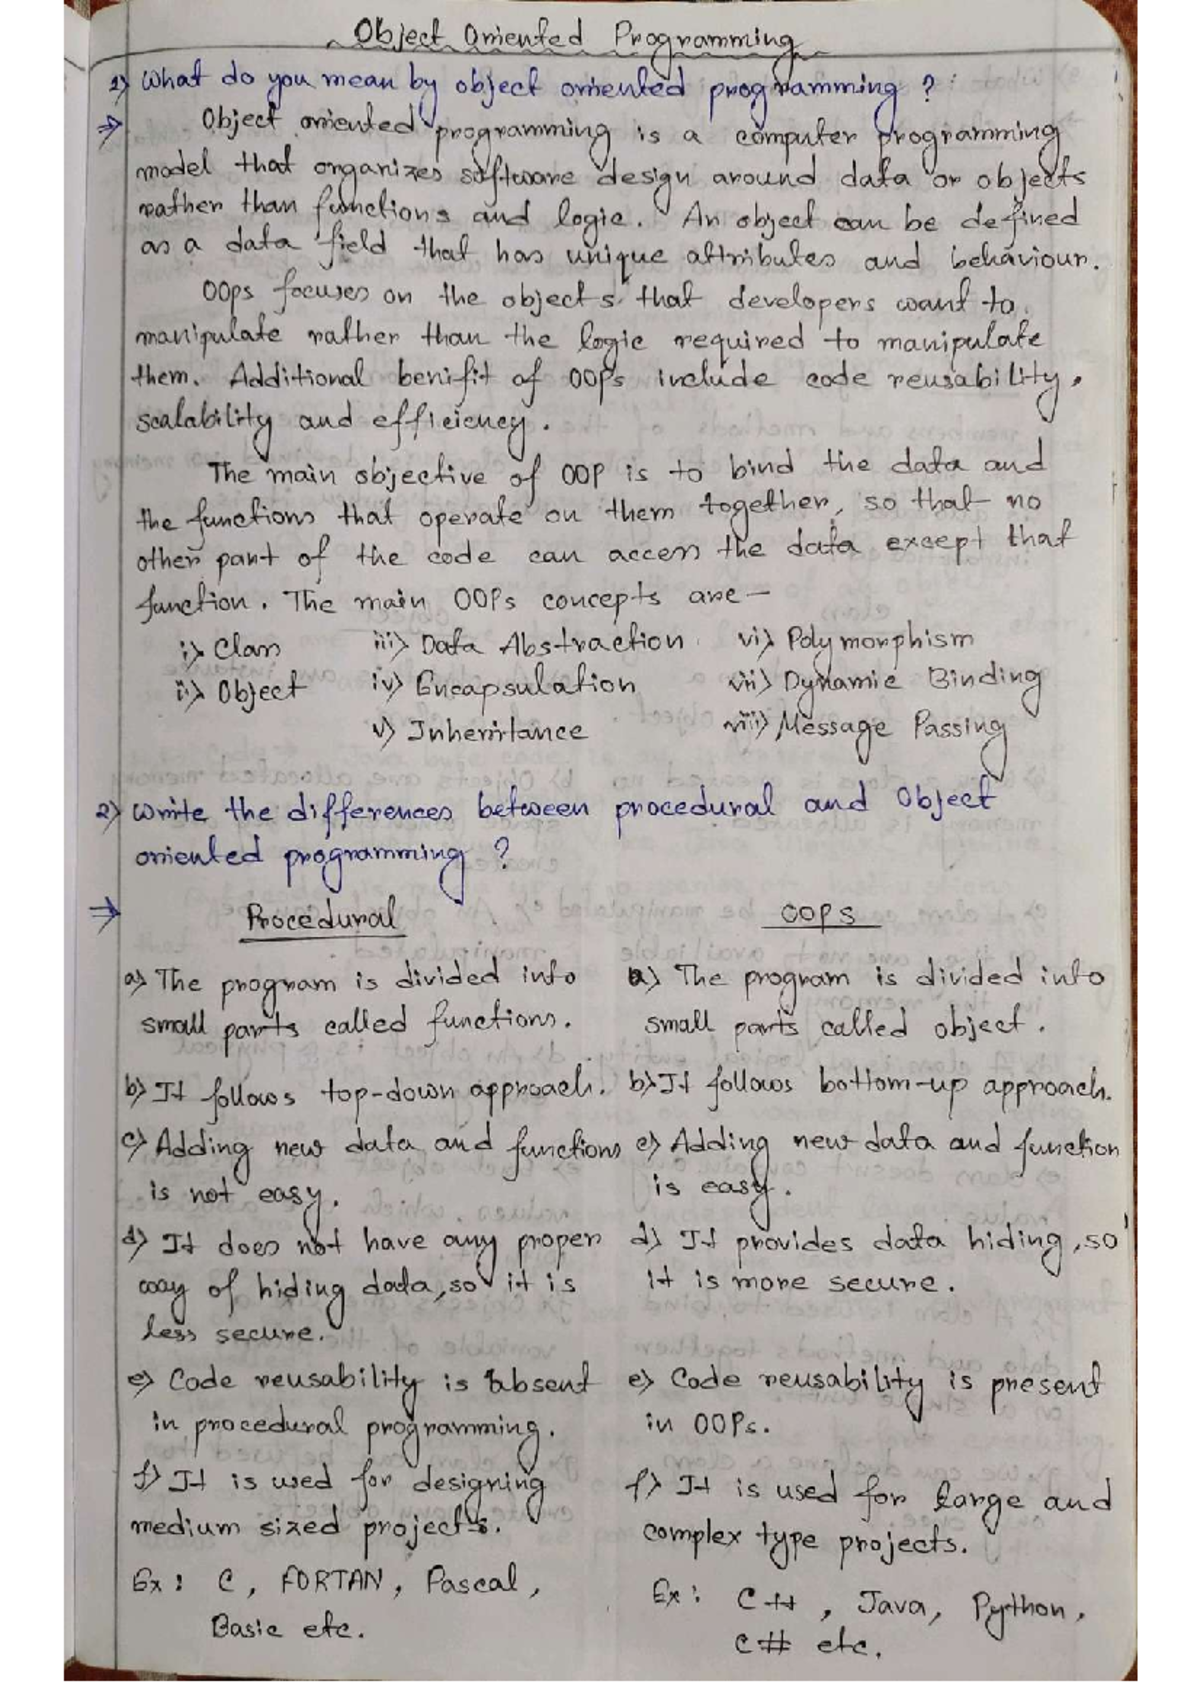 Object Oriented Programming
1) What do you mean by object oriented programming ?
⇒ Object oriented programming is a computer programming
model that organizes software design around data or objects
rather than functions and logic. An object can be defined
as a data field that has unique attributes and behaviour.
OOps focuses on the objects that developers want to
manipulate rather than the logic required to manipulate
them. Additional benifit of OOPs include code reusability,
scalability and efficiency.
The main objective of OOP is to bind the data and
the functions that operate on them together, so that no
other part of the code can access the data except that
function. The main OOPs concepts are —
i) Class iii) Data Abstraction vi) Polymorphism
ii) Object iv) Encapsulation vii) Dynamic Binding
v) Inheritance viii) Message Passing
2) Write the differences between procedural and Object
oriented programming ?
⇒ Procedural OOPS
a) The program is divided into a) The program is divided into
small parts called functions. small parts called object.
b) It follows top-down approach. b) It follows bottom-up approach.
c) Adding new data and functions c) Adding new data and function
is not easy. is easy.
d) It does not have any proper d) It provides data hiding, so
way of hiding data, so it is it is more secure.
less secure.
e) Code reusability is absent e) Code reusability is present
in procedural programming. in OOPs.
f) It is used for designing f) It is used for large and
medium sized projects. complex type projects.
Ex : C, FORTAN, Pascal, Ex : C++, Java, Python,
Basic etc. C# etc.